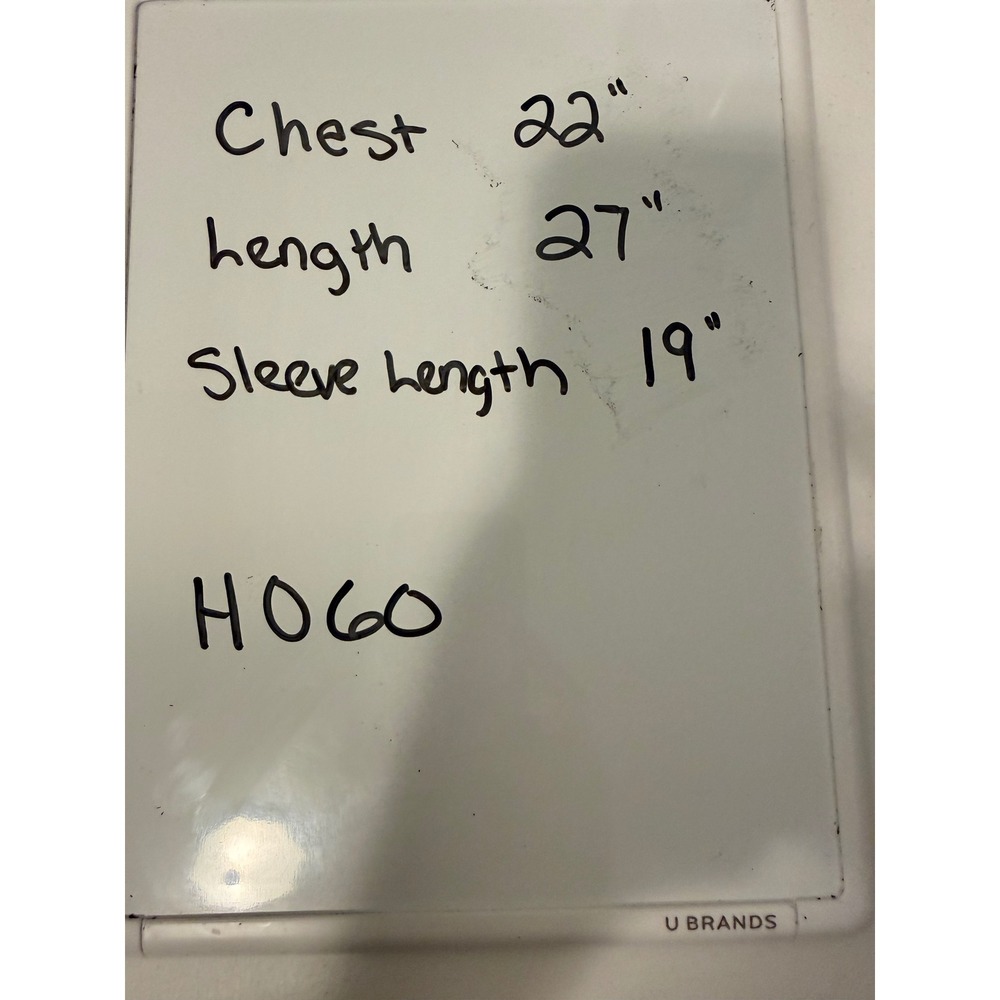 Chest 22"
Length 27"
Sleeve Length 19"
H060
U BRANDS